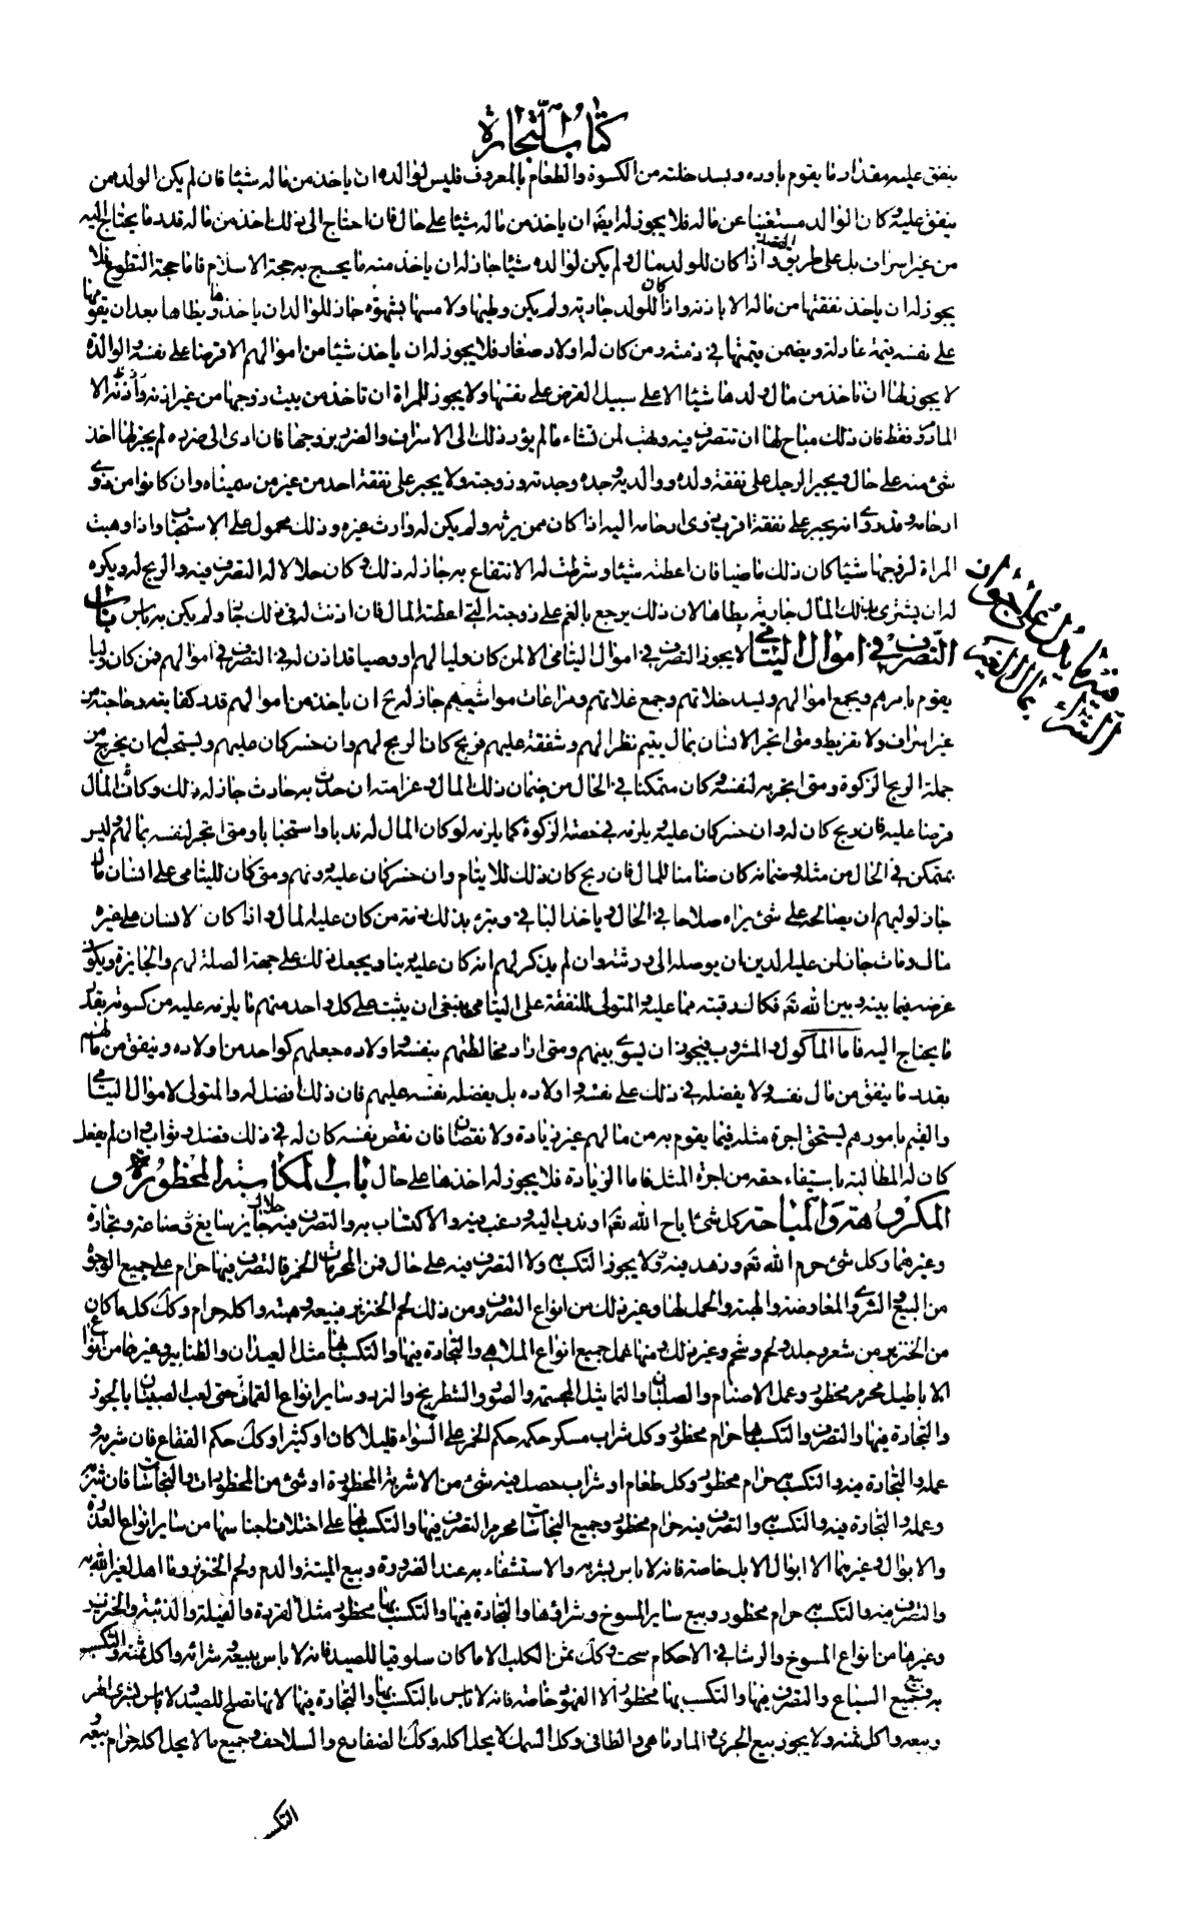 كتاب التجارة
ينفق عليه مقدار ما يقوم باوده وبسد خلته من الكسوة والطعام بالمعروف فليس لوالده ان ياخذ من ماله شيئا فان لم يكن الولد ممن
ينفق عليه وكان الوالد مستغنيا عن ماله فلا يجوز له ايضا ان ياخذ من ماله شيئا على حال فان احتاج الى ذلك اخذ من ماله قدر ما يحتاج اليه
من غير اسراف بل على طريق القصد واذا كان للولد مال ولم يكن لوالده شيئا جاز له ان ياخذ منه ما يحج به حجة الاسلام فاما حجة التطوع فلا
يجوز له ان ياخذ نفقتها من ماله الا باذنه واذا كان للولد جارية ولم يكن وطيها ولا مسها بشهوة جاز للوالد ان ياخذها ويطاها بعد ان يقومها
على نفسه قيمة عادلة ويضمن قيمتها في ذمته ومن كان له اولاد صغار فلا يجوز له ان ياخذ شيئا من اموالهم الا قرضا على نفسه والوالدة
لا يجوز لها ان تاخذ من مال ولدها شيئا الا على سبيل القرض على نفسها ولا يجوز للمراة ان تاخذ من بيت زوجها من غير اذنه واذنه الا
المادوم فقط فان ذلك مباح لها ان تتصرف فيه وتهب لمن تشاء ما لم يؤد ذلك الى الاسراف والضرر بزوجها فان ادى الى ضرره لم يجز لها اخذ
شئ منه على حال ويجبر الرجل على نفقة ولده ووالديه وجده وجدته وزوجته ولا يجبر على نفقة احد من غير من سميناه وان كانوا من ذوي
ارحامه وقد روي انه يجبر على نفقة اقرب ذوي ارحامه اليه اذا كان ممن يرثه ولم يكن له وارث غيره وذلك محمول على الاستحباب واذا وهبت
المراة لزوجها شيئا كان ذلك ماضيا فان اعطته شيئا وشرطت له الانتفاع به جاز له ذلك وكان حلالا له التصرف فيه والربح له ويكره
له ان يشتري بذلك المال جارية يطاها لان ذلك يرجع بالغم على زوجته التي اعطته المال فان اذنت له في ذلك جاز ولم يكن به باس باب
التصرف في اموال اليتامى لا يجوز التصرف في اموال اليتامى الا لمن كان وليا لهم او وصيا قد اذن له في التصرف في اموالهم فمن كان وليا
فيه ما يدل على جواز
الشراء بمال الغير
يقوم بامرهم ويجمع اموالهم وليسد خلاتهم وجمع غلاتهم ومراعات مواشيهم جاز له ح ان ياخذ من اموالهم قدر كفايته وحاجته من
غير اسراف ولا تفريط ومتى اتجر الانسان بمال يتيم نظرا لهم وشفقة عليهم فربح كان الربح لهم وان خسر كان عليهم ويستحب له ان يخرج من
جملة الربح الزكوة ومتى اتجر به لنفسه وكان متمكنا في الحال من ضمان ذلك المال وغرامته ان حدث به حادث جاز له ذلك وكان المال
قرضا عليه فان ربح كان له وان خسر كان عليه ويلزمه في حصته الزكوة كما يلزمه لو كان المال له ندبا واستحبابا ومتى اتجر لنفسه بمالهم وليس
بمتمكن في الحال من مثله وضمانه كان ضامنا للمال فان ربح كان ذلك للايتام وان خسر كان عليه دونهم ومتى كان لليتامى على انسان مال
جاز لوليهم ان يصالحه على شئ يراه صلاحا في الحال وياخذ الباقي ويبرء بذلك ذمة من كان عليه المال واذا كان لانسان على غيره
مال ومات جاز لمن عليه الدين ان يوصله الى ورثته وان لم يذكر لهم انه كان عليه دينا ويجعل ذلك على جهة الصلة لهم والجايزة ويكون
غرضه فيما بينه وبين الله تعم فكاك رقبته مما عليه والمتولى للنفقة على اليتامى ينبغي ان يثبت على كل واحد منهم ما يلزمه عليه من كسوته بقدر
ما يحتاج اليه فاما الماكول والمشروب فيجوز ان يسوي بينهم ومتى اراد مخالطتهم بنفسه واولاده جعلهم كواحد من اولاده وينفق من مالهم
بقدر ما ينفق من مال نفسه ولا يفضله في ذلك على نفسه واولاده بل يفضله نفسه عليهم فان ذلك افضل له والمتولى لاموال اليتامى
والقيم بامورهم ليستحق اجرة مثله فيما يقوم به من مالهم غير زيادة ولا نقصان فان نقص نفسه كان له في ذلك فضل وثواب وان لم يفعل
كان له المطالبة باستيفاء حقه من اجرة المثل فاما الزيادة فلا يجوز له اخذها على حال باب المكاسب المحظورة و
المكروهة والمباحة كل شئ اباح الله تعم او ندب اليه ورغب فيه والاكتساب به والتصرف فيه حلال جايز سايغ من صناعة وتجارة
وغيرهما وكل شئ حرم الله تعم وزهد فيه ولا يجوز التكسب به ولا التصرف فيه على حال فمن المحرمات الخمر فالتصرف فيها حرام على جميع الوجوه
من البيع والشرى والمعاوضة والهبة والحمل لها وغير ذلك من انواع التصرف ومن ذلك لحم الخنزير فبيعه وهبته واكله حرام وكك كل ما كان
من الخنزير من شعر وجلد ولحم وشحم وغير ذلك ومنها عمل جميع انواع الملاهي والتجارة فيها والتكسب بها مثل العيدان والطنابير وغيرها من انواع
الاباطيل محرم محظور وعمل الاصنام والصلبان والتماثيل المجسمة والصور والشطرنج والنرد وساير انواع القمار حتى لعب الصبيان بالجوز
والتجارة فيها والتصرف والتكسب بها حرام محظور وكل شراب مسكر حكمه حكم الخمر على السواء قليلا كان او كثيرا وكك حكم الفقاع فان شربه و
عمله والتجارة فيه والتكسب به حرام محظور وكل طعام او شراب حصل فيه شئ من الاشربة المحظورة او شئ من المحظورات والنجاسات فان شربه
وعمله والتجارة فيه والتكسب به والتصرف فيه حرام محظور وجميع النجاسات محرم التصرف فيها والتكسب بها على اختلاف اجناسها من ساير انواع العذرة
والابوال وغيرهما الا ابوال الابل خاصة فانه لا باس بشربه والاستشفاء به عند الضرورة وبيع الميتة والدم ولحم الخنزير وما اهل لغير الله به
والتصرف فيه والتكسب به حرام محظور وبيع ساير المسوخ وشراؤها والتجارة فيها والتكسب بها محظور مثل القردة والفيلة والدببة والخنزير
وغيرها من انواع المسوخ والرشا في الاحكام سحت وكك ثمن الكلب الا ما كان سلوقيا للصيد فانه لا باس ببيعه وشرائه واكل ثمنه والتكسب
به وبيع جميع السباع والتصرف فيها والتكسب بها محظور الا الفهود خاصة فانه لا باس بالتكسب بها والتجارة فيها لانها تصلح للصيد ولا باس بشرى الهر
وبيعه واكل ثمنه ولا يجوز بيع الجري والمارماهي والطافي وكل السمك لا يحل اكله وكك الضفادع والسلاحف وجميع ما لا يحل اكله حرام بيعه و
التكسب